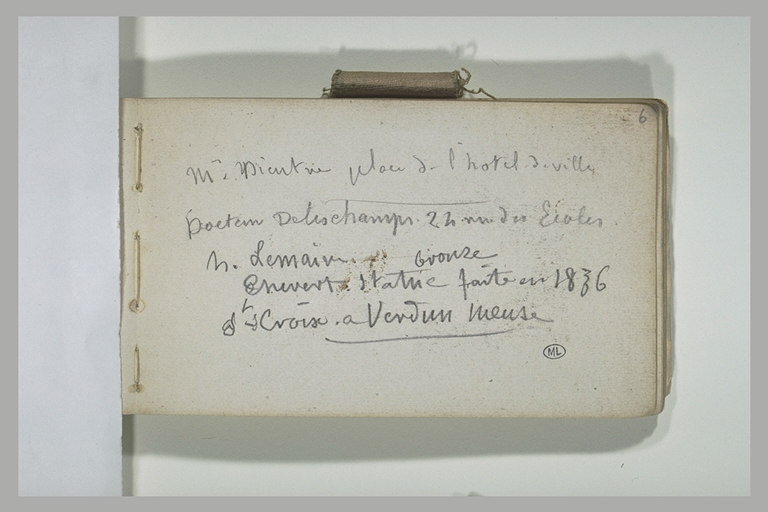 6
Mr. Dieutrie place de l'hotel de ville
Docteur Delieschamps. 24 rue des Ecoles.
h. Lemaire. bronze
Chevert. Statue faite en 1836
Ste Croix. a Verdun Meuse
ML